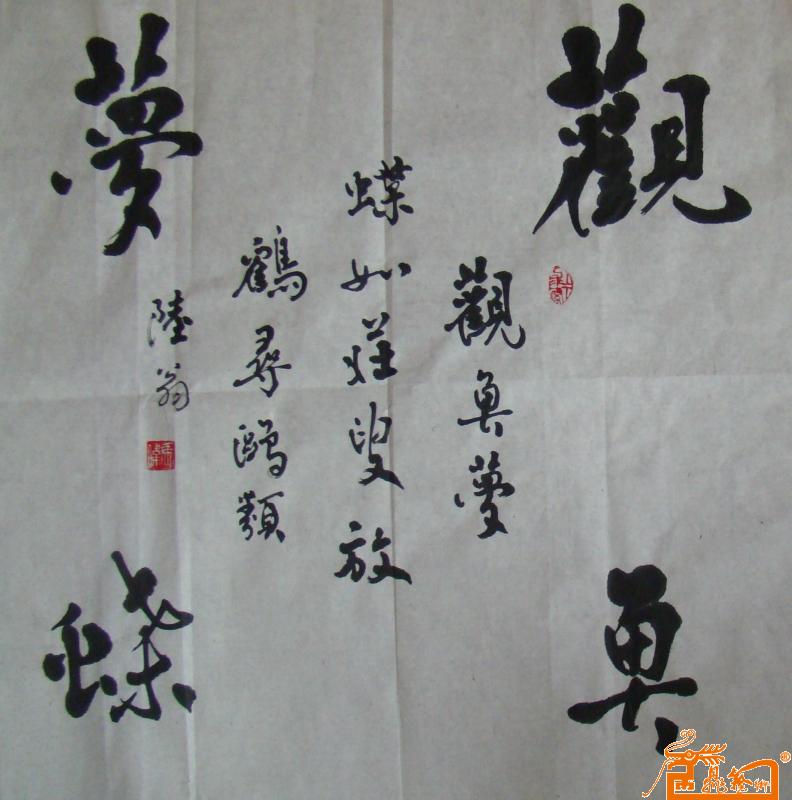 觀魚
夢蝶
觀魚夢
蝶如莊叟放
鶴尋鷗類
陸翁